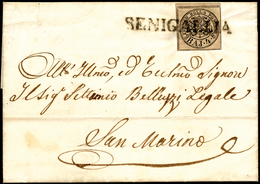 SENIGALLIA
All'Illmo, ed Ecclmo Signore
Il Sig. Settimio Belluzzi Legale
San Marino